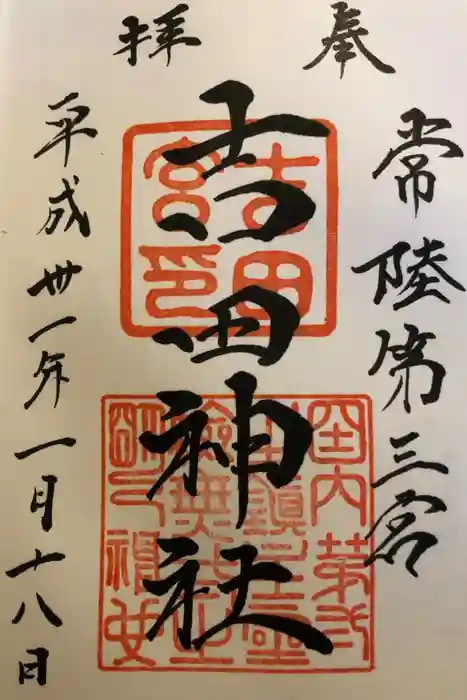 奉拝
常陸第三宮
吉田神社
平成卅一年一月十八日
吉田宮印